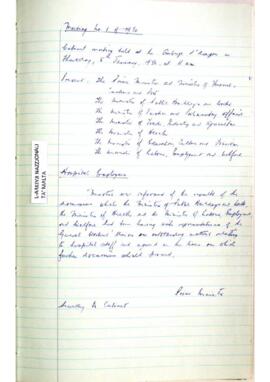 Meeting No 1 of 1970
Cabinet meeting held at the Auberge d'Aragon on
Thursday, 8th January, 1970, at 11 am
Present: The Prime Minister and Minister of
Customs and Port
The Minister of Public Buildings and Works
The Minister of and Parliamentary Affairs
The Minister of Trade, Industry and Agriculture
The Minister of Health
The Minister of Education, Culture and Tourism
The Minister of Labour, Employment and Welfare
L-ARKIVJI NAZZJONALI
TA' MALTA
Hospital Employees
Ministers were informed of the results of the
discussions which the Minister of Public Buildings and Works,
the Minister of Health and the Minister of Labour, Employment
and Welfare had been having with representatives of the
General Workers Union on outstanding matters relating
to hospital staff and agreed on the lines on which
further discussions should proceed.
Prime Minister
Secretary to Cabinet